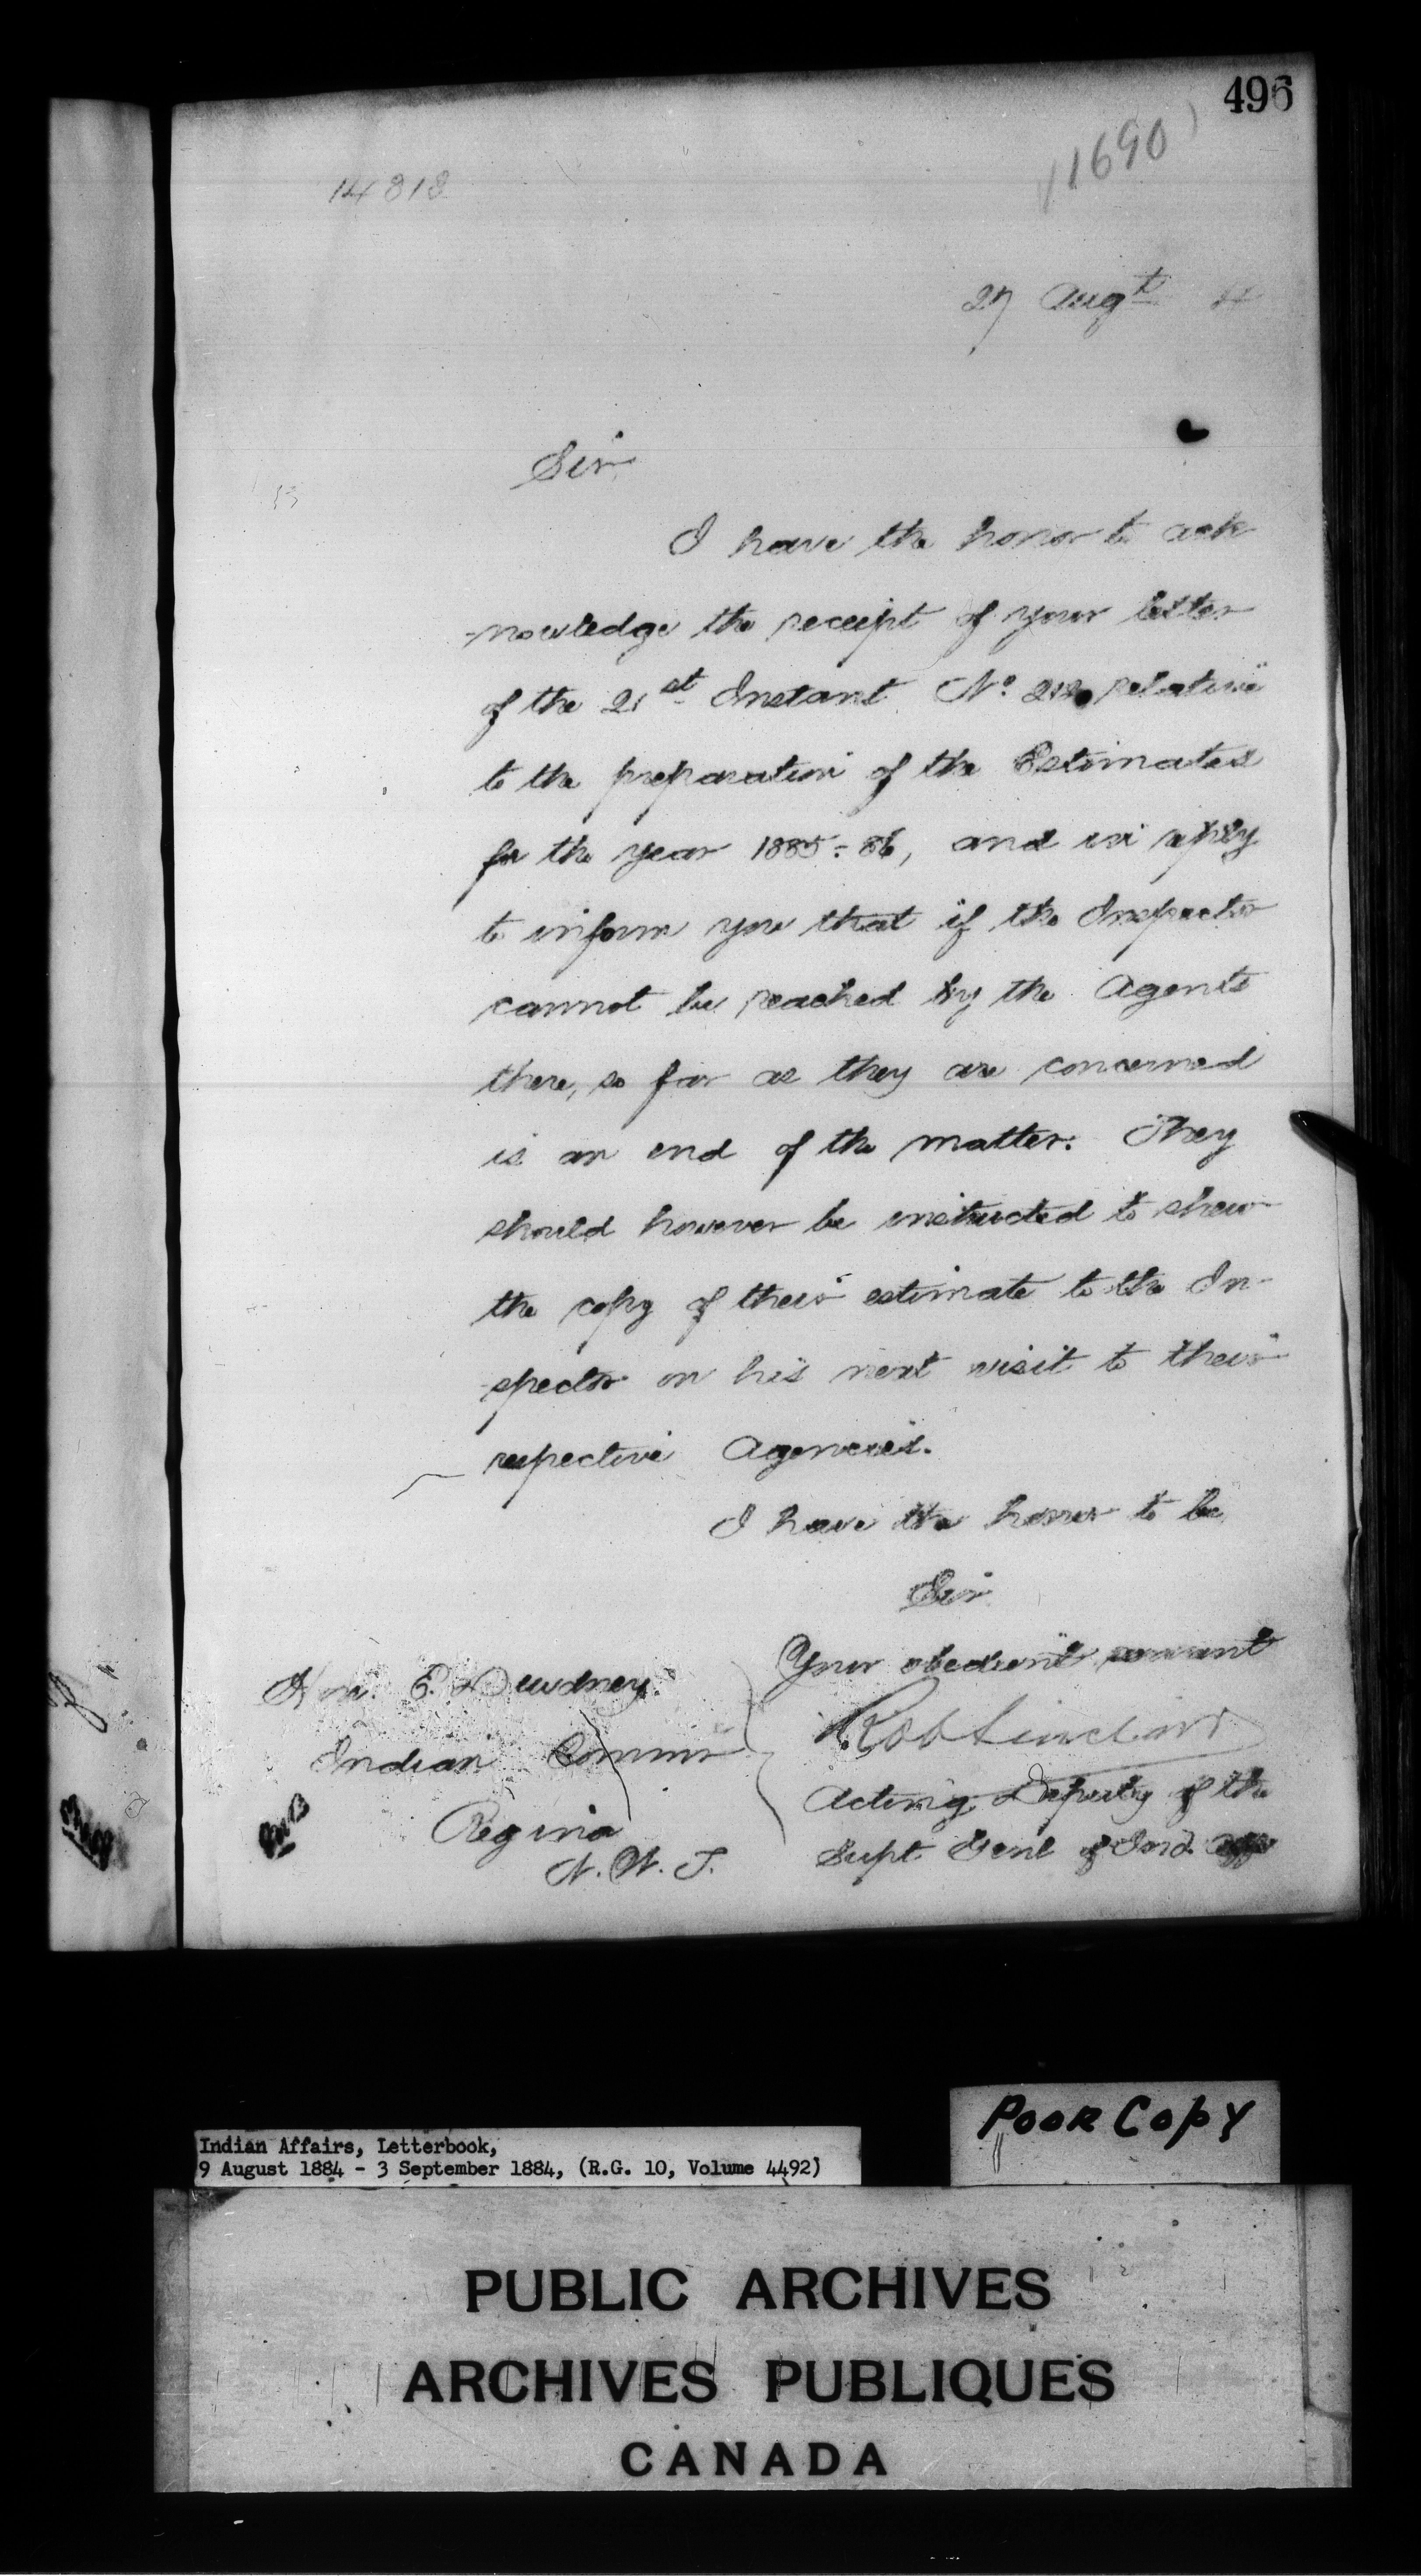 496
11690
14818
27 Augt
Sir
I have the honor to ack
-nowledge the receipt of your letter
of the 21st Instant No. 212 relative
to the preparation of the Estimates
for the year 1885-86, and in reply
to inform you that if the Inspector
cannot be reached by the Agents
there, so far as they are concerned
is an end of the matter. They
should however be instructed to shew
the copy of their estimate to the In-
-spector on his next visit to their
respective Agencies.
I have the honor to be
Sir
Your obedient servant
Rob Sinclair
Acting Deputy of the
Supt Genl of Ind. Aff
Hon. E. Dewdney
Indian Commr
Regina
N. W. T.
Poor Copy
Indian Affairs, Letterbook,
9 August 1884 - 3 September 1884, (R.G. 10, Volume 4492)
PUBLIC ARCHIVES
ARCHIVES PUBLIQUES
CANADA